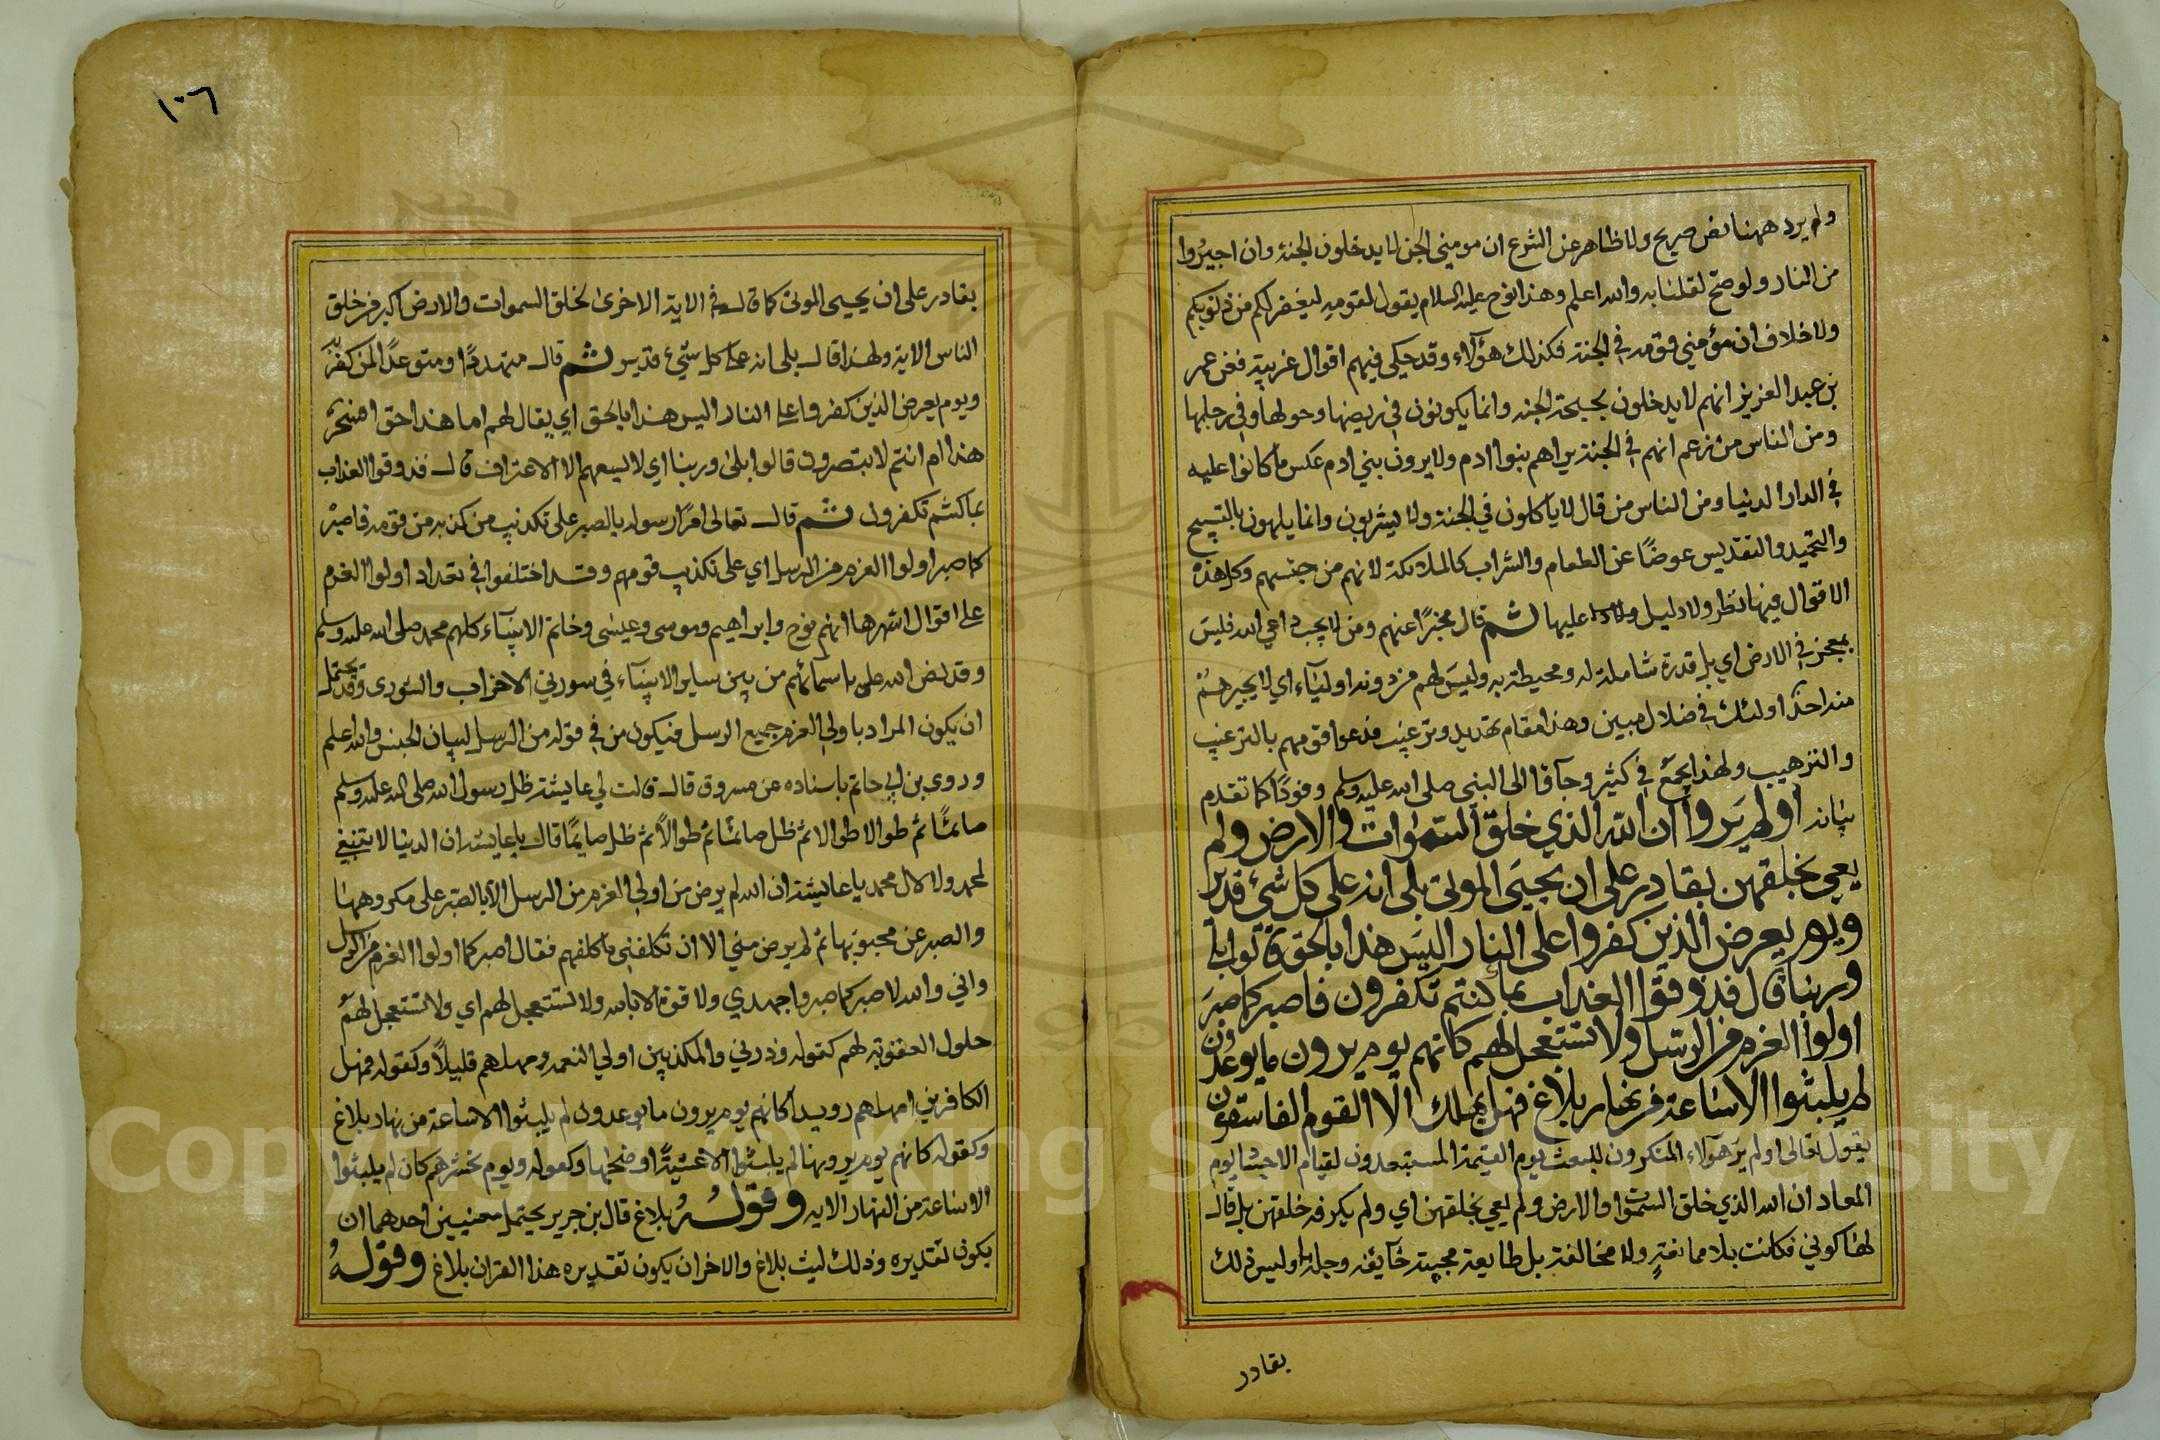 ولم يرد ههنا نص صريح ولا ظاهر عن الشرع ان مومني الجن لا يدخلون الجنة وان اجيروا
من النار ولو صح لقلنا به والله اعلم وهذا نوح عليه السلام يقول لقومه ليغفر لكم من ذنوبكم
ولا خلاف ان مؤمني قومه في الجنة فكذلك هؤلاء وقد حكي فيهم اقوال غريبة فعن عمر
بن عبد العزيز انهم لا يدخلون بحبحة الجنه وانما يكونون في ربضها وحولها وفي رجلها
ومن الناس من زعم انهم في الجنة يراهم بنوا ادم ولا يرون بني ادم عكس ما كانوا عليه
في الدار الدنيا ومن الناس من قال لا ياكلون في الجنة ولا يشربون وانما يلهمون بالتسبيح
والتحميد والتقديس عوضًا عن الطعام والشراب كالملائكة لانهم من جنسهم وكل هذه
الاقوال فيها نظر ولا دليل عليها ثم قال مخبرًا عنهم ومن لا يجب داعي الله فليس
بمعجز في الارض اي بل قدرة شاملة له ومحيطة به وليس لهم من دونه اولياء اي لا يجيرهم
منه احد اولئك في ضلال مبين وهذا مقام تهديد وترغيب فدعوا قومهم بالترغيب
والترهيب ولهذا نجع في كثير وجآؤا الى النبي صلى الله عليه وسلم وفودًا كما تقدم
بيانه اولم يروا ان الله الذي خلق السموات والارض ولم
يعي بخلقهن بقادر على ان يحيي الموتى بلى انه على كل شيء قدير
ويوم يعرض الذين كفروا على النار اليس هذا بالحق قالوا بلى
وربنا قال فذوقوا العذاب بما كنتم تكفرون فاصبر كما صبر
اولوا العزم من الرسل ولا تستعجل لهم كانهم يوم يرون ما يوعدون
لم يلبثوا الا ساعة من نهار بلاغ فهل يهلك الا القوم الفاسقون
يقول تعالى اولم ير هؤلاء المنكرون للبعث يوم القيمة المستبعدون لقيام الاجساد يوم
المعاد ان الله الذي خلق السموات والارض ولم يعي بخلقهن اي ولم يكرثه خلقهن بل قال
لها كوني فكانت بلا ممانعة ولا مخالفة بل طايعة مجيبة خآيفه وجلة اوليس ذلك
بقادر
١٠٦
بقادر على ان يحيي الموتى كما قال في الاية الاخرى لخلق السموات والارض اكبر من خلق
الناس الاية ولهذا قال بلى انه على كل شيء قدير ثم قال متهددًا ومتوعدًا لمن كفر به
ويوم يعرض الذين كفروا على النار اليس هذا بالحق اي يقال لهم اما هذا حق افسحر
هذا ام انتم لا تبصرون قالوا بلى وربنا اي لا يسعهم الا الاعتراف قال فذوقوا العذاب
بما كنتم تكفرون ثم قال تعالى امرًا رسوله بالصبر على تكذيب من كذبه من قومه فاصبر
كما صبر اولوا العزم من الرسل اي على تكذيب قومهم وقد اختلفوا في تعداد اولوا العزم
على اقوال اشهرها انهم نوح وابراهيم وموسى وعيسى وخاتم الانبيآء كلهم محمد صلى الله عليه وسلم
وقد نص الله على اسمائهم من بين ساير الانبيآء في سورتي الاحزاب والشورى وقد يحتمل
ان يكون المراد باولي العزم جميع الرسل فيكون من في قوله من الرسل لبيان الجنس والله اعلم
وروى بن ابي حاتم باسناده عن مسروق قال قالت لي عايشة ظل رسول الله صلى الله عليه وسلم
صائمًا ثم طوالا طوالا ثم ظل صائمًا ثم طوالًا ثم ظل صايمًا قال يا عايشه ان الدنيا لا تنبغي
لمحمد ولا لال محمد يا عايشة ان الله لم يرض من اولي العزم من الرسل الا بالصبر على مكروهها
والصبر عن محبوبها ثم لم يرض مني الا ان تكلفني ما كلفهم فقال اصبر كما اولوا العزم من الرسل
واني والله لاصبر كما صبروا جهدي ولا قوة الا بالله ولا تستعجل لهم اي ولا تستعجل لهم
حلول العقوبة لهم كقوله وذرني والمكذبين اولي النعمة ومهلهم قليلًا وكقوله فمهل
الكافرين امهلهم رويدا كانهم يوم يرون ما يوعدون لم يلبثوا الا ساعة من نهار بلاغ
وكقوله كانهم يوم يرونها لم يلبثوا الا عشيةً او ضحيها وكقوله ويوم نحشرهم كان لم يلبثوا
الا ساعة من النهار الايه وقوله بلاغ قال بن جرير يحتمل معنيين احدهما ان
يكون تقديره وذلك لبث بلاغ والاخر ان يكون تقديره هذا القران بلاغ وقوله
Copyright © King Saud University